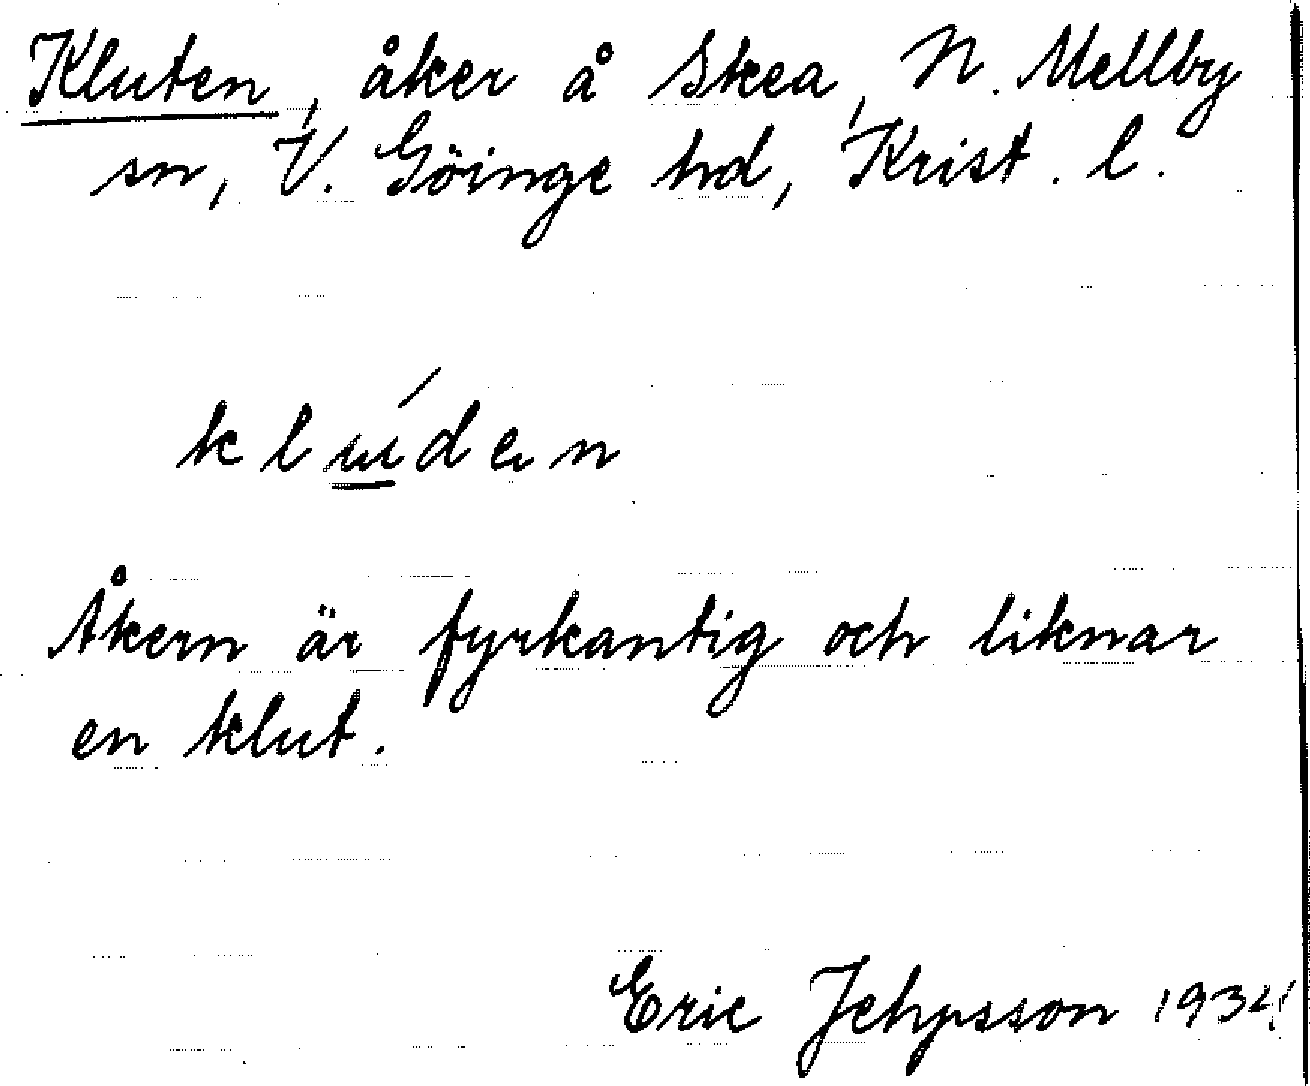 Kluten, åker å Skea, N. Mellby
sn, V. Göinge hd, Krist. l.
klúden
Åkern är fyrkantig och liknar
en klut.
Eric Jehpsson 1934